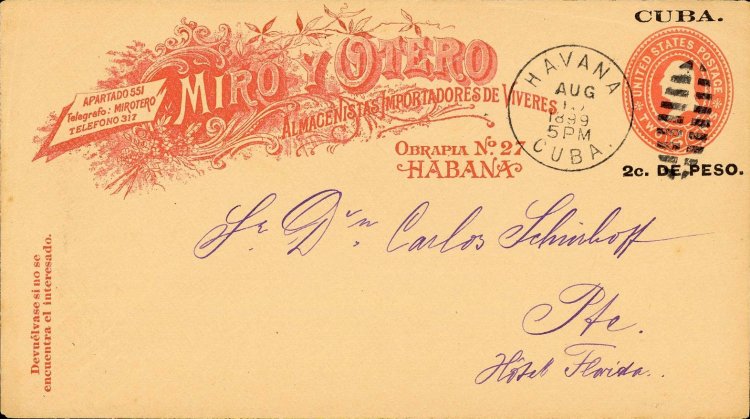 CUBA.
UNITED STATES POSTAGE
2c. DE PESO.
HAVANA
AUG
1899
5PM
CUBA.
APARTADO 551
Telegrafo: MIROTERO
TELEFONO 317
MIRO Y OTERO
ALMACENISTAS IMPORTADORES DE VIVERES
OBRAPIA No. 27
HABANA
Sr. Dn. Carlos
Pte.
Hôtel Florida.
Devuélvase si no se
encuentra el interesado.